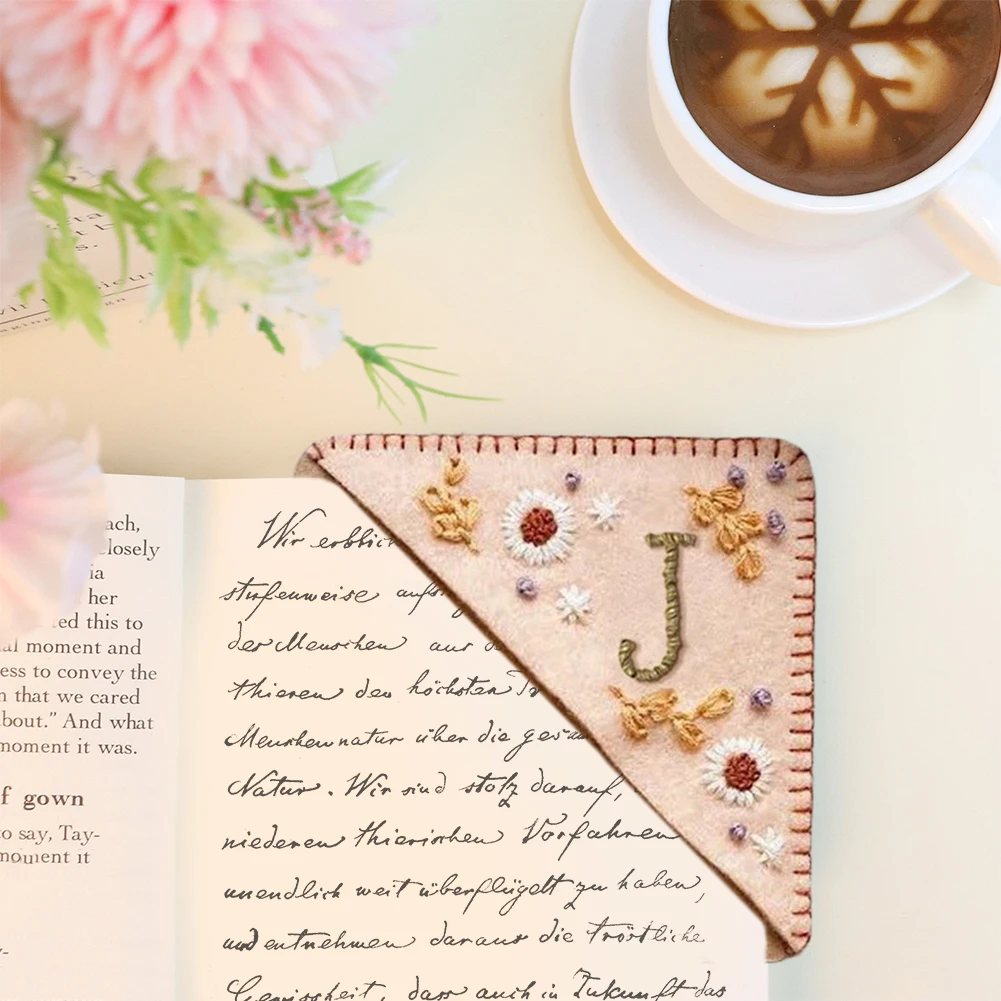 ach,
closely
ia
her
ed this to
al moment and
ess to convey the
n that we cared
bout.” And what
moment it was.
f gown
to say, Tay-
moment it
J
Wir erblicken
stufenweise
der Menschen aus
thieren den höchsten
Menschennatur über die
Natur. Wir sind stolz darauf,
niederen thierischen Vorfahren
unendlich weit überflügelt zu haben,
und entnehmen daraus die tröstliche
Gewissheit, dass auch in Zukunft das